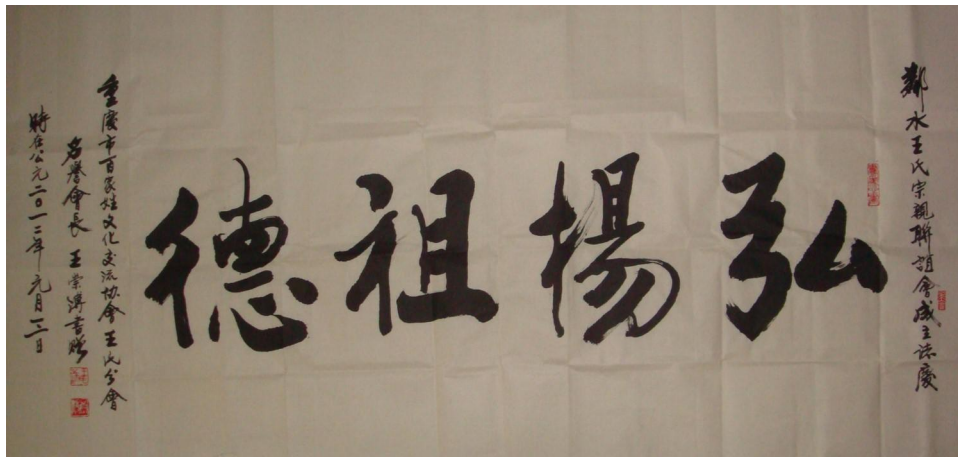 鄰水王氏宗親聯誼會成立誌慶
弘揚祖德
重慶市百家姓文化交流协會王氏分會
名譽會長 王崇濤書贈
時在公元二〇一二年元月一日